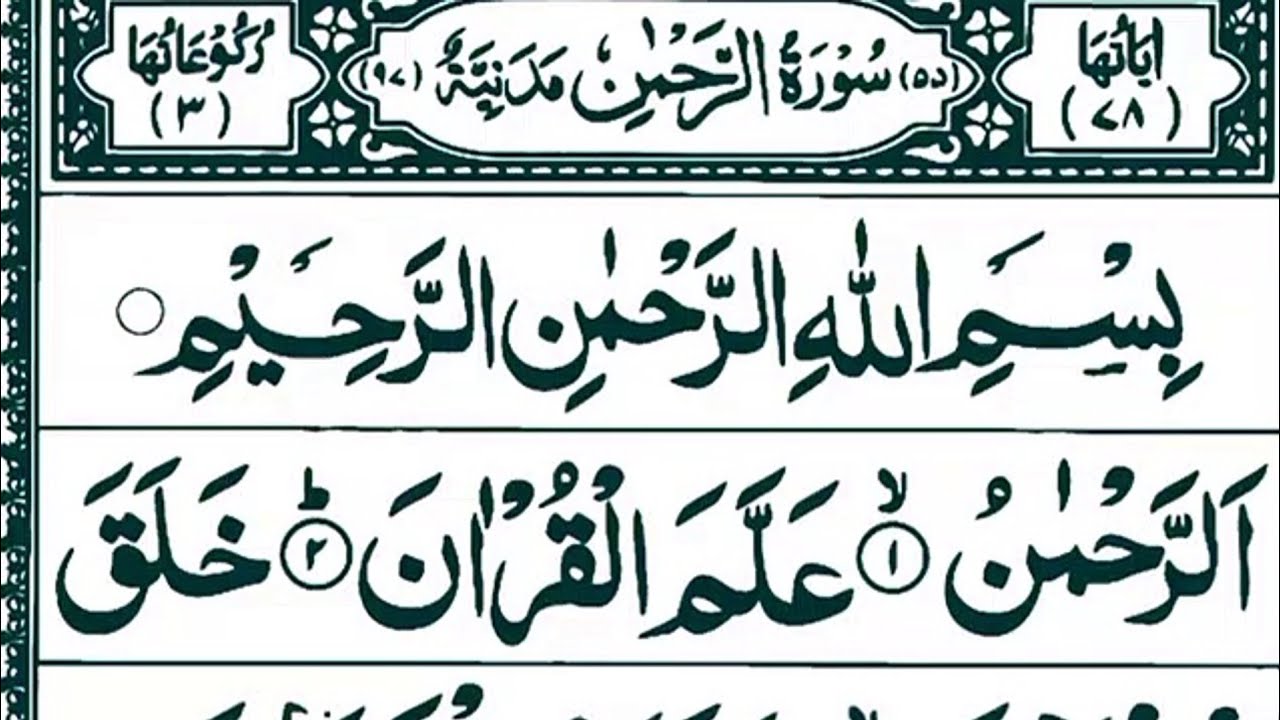 اٰیَاتُهَا (۷۸)
(۵۵) سُوْرَةُ الرَّحْمٰنِ مَدَنِیَّةٌ (۹۷)
رُكُوْعَاتُهَا (۳)
بِسْمِ اللّٰهِ الرَّحْمٰنِ الرَّحِیْمِ
اَلرَّحْمٰنُ ۙ﴿۱﴾ عَلَّمَ الْقُرْاٰنَ ؕ﴿۲﴾ خَلَقَ